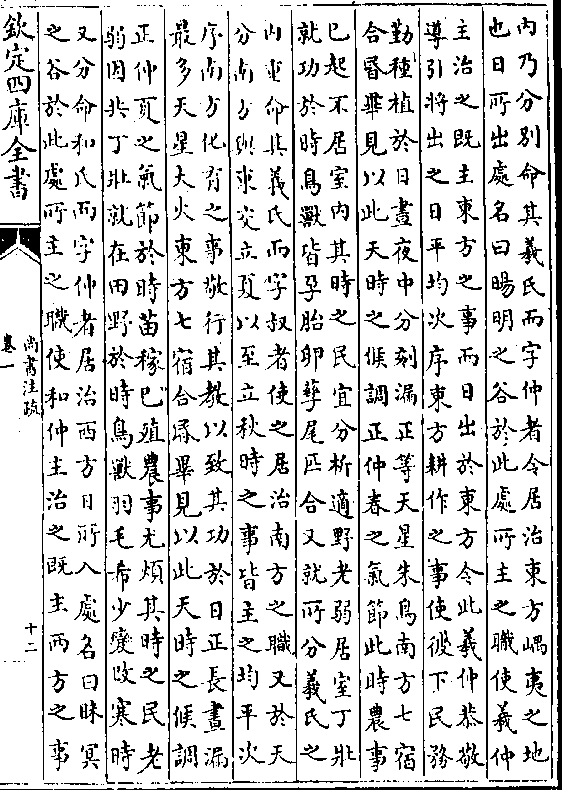 内乃分別命其羲氏而字仲者令居治東方嵎夷之地
也日所出處名曰暘明之谷於此處所主之職使羲仲
主治之既主東方之事而日出於東方令此羲仲恭敬
導引將出之日平均次序東方耕作之事使彼下民務
勤種植於日晝夜中分刻漏正等天星朱鳥南方七宿
合昏畢見以此天時之候調正仲春之氣節此時農事
已起不居室内其時之民宜分析適野老弱居室丁壯
就功於時鳥獸皆孕胎卵孳尾匹合又就所分羲氏之
内重命其羲氏而字叔者使之居治南方之職又於天
分南方與東交立夏以至立秋時之事皆主之均平次
序南方化育之事敬行其教以致其功於日正長晝漏
最多天星大火東方七宿合昏畢見以此天時之候調
正仲夏之氣節於時苗稼已殖農事尤煩其時之民老
弱因共丁壯就在田野於時鳥獸羽毛希少變改寒時
又分命和氏而字仲者居治西方日所入處名曰昧冥
之谷於此處所主之職使和仲主治之既主西方之事
欽定四庫全書
尚書注疏
卷一
十二